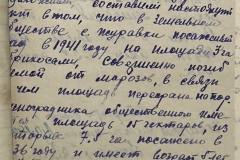 составили настоящий
в том, что в земельном
обществе с. Журавки посаженый
в 1941 году на площади 3 га
абрикосами, совершенно погиб
от морозов, в связи
чем площадь передана на пор.
виноградника общественного име
площадь 15 гектаров, из
7,5 га посажено в
36 году и имеет возраст 8 лет